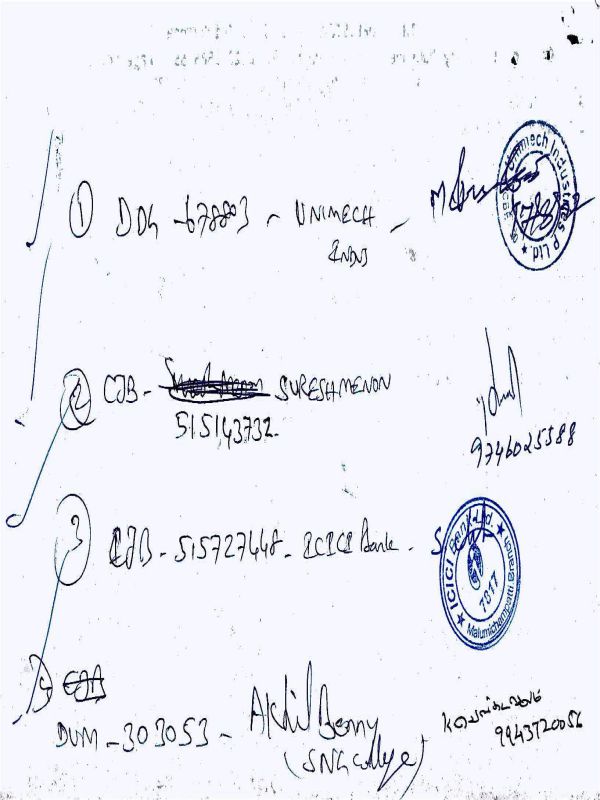 1 DDG - 678803 - UNIMECH
INDS
Unimech Industries P Ltd.
2 CJB - SURESHMENON
515143732.
9746025588
3 CJB - 515727448 - ICICI Bank -
ICICI Bank Ltd.
7817
Malumichampatti Branch
DUM - 303053 - Akhil Benny
(SNG college)
9943720056